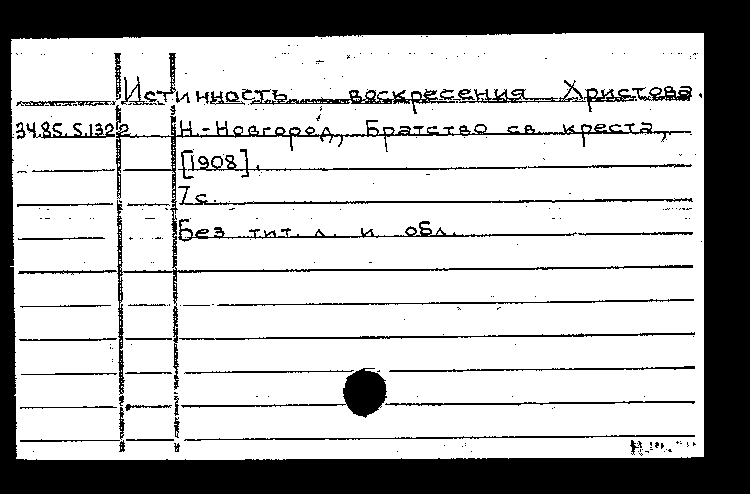 Истинность воскресения Христова.
34.85.5.1322 Н.-Новгород, Братство св. креста,
[1908].
7 с.
Без тит. л. и обл.